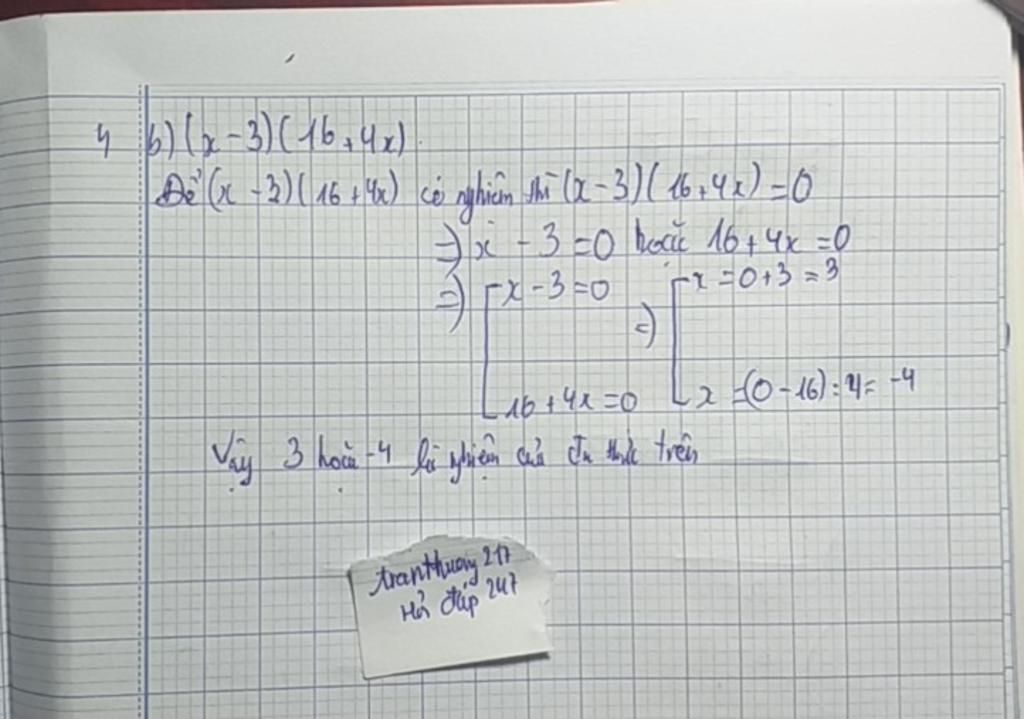 4 b) (x - 3)(16 + 4x).
Để (x - 3)(16 + 4x) có nghiệm thì (x - 3)(16 + 4x) = 0
=> x - 3 = 0 hoặc 16 + 4x = 0
=> [ x - 3 = 0 => [ x = 0 + 3 = 3
16 + 4x = 0 x = (0 - 16) : 4 = -4
Vậy 3 hoặc -4 là nghiệm của đa thức trên
tranthuong217
Hỏi đáp 247